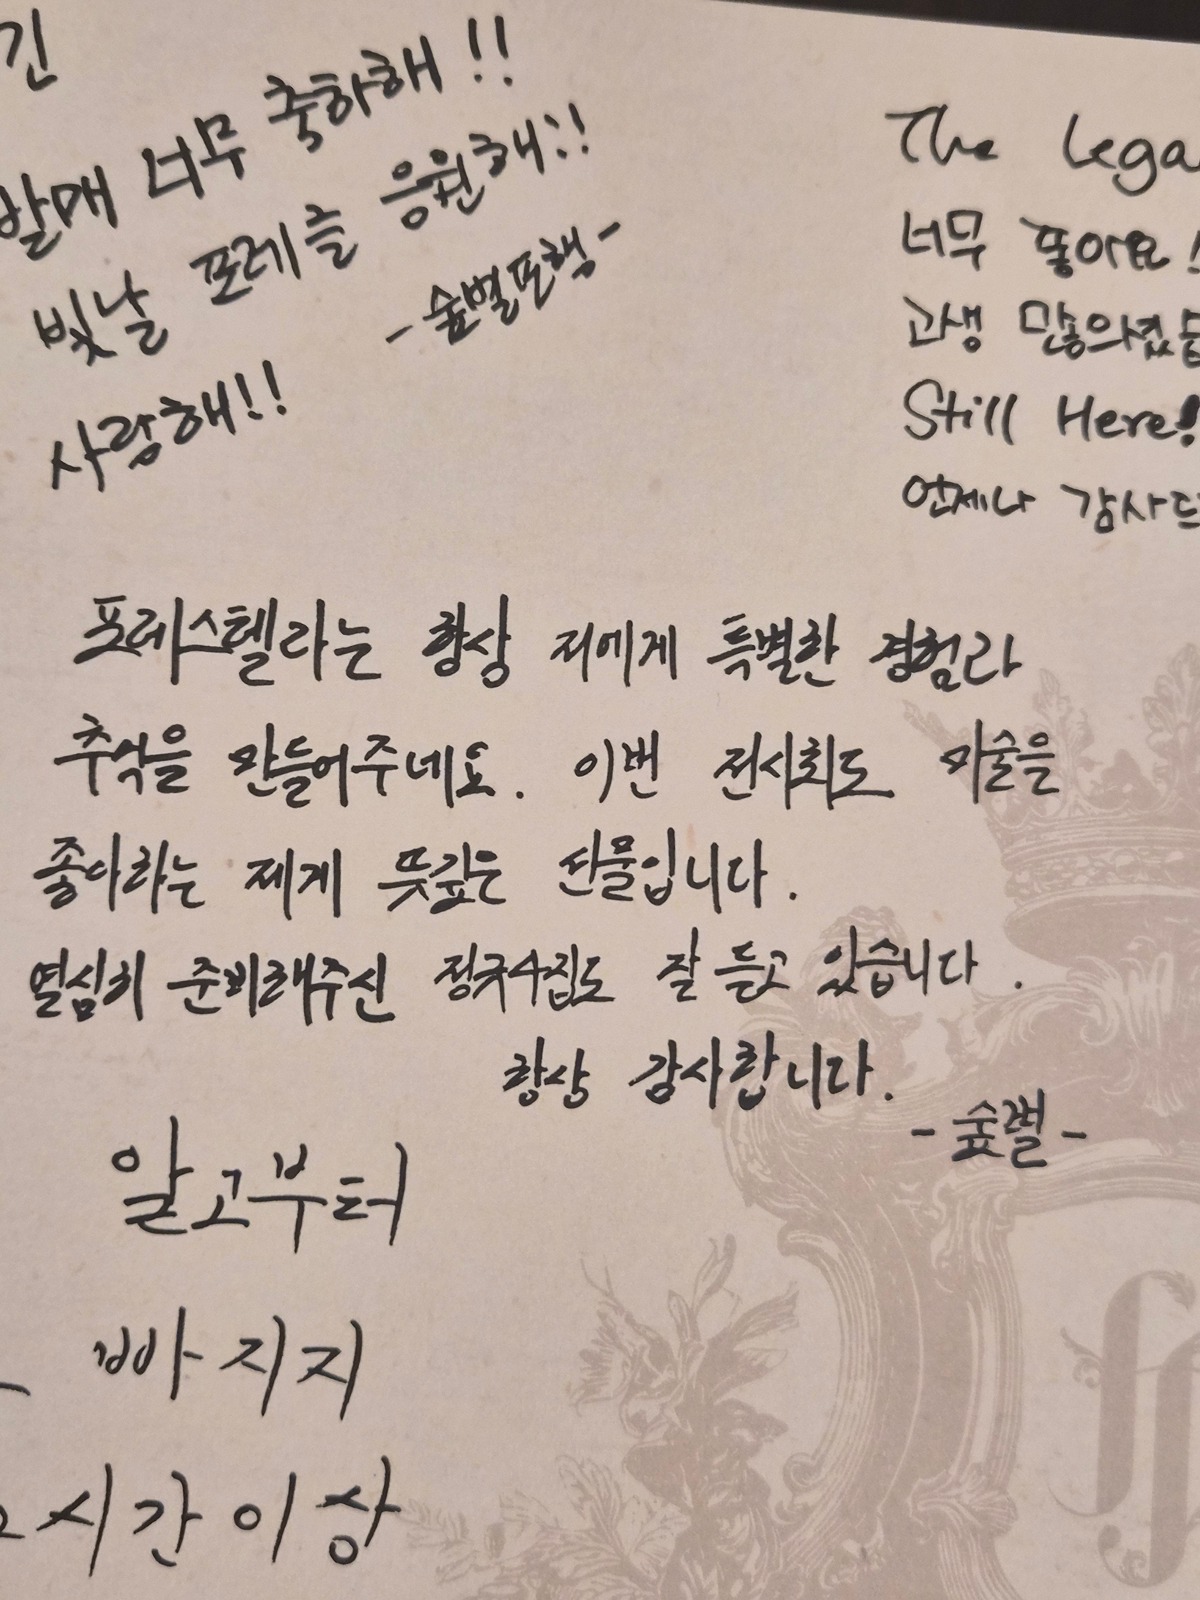 긴
발매 너무 축하해!!
빛날 포레를 응원해!!
- 숲별포행 -
사랑해!!
The Lega
너무 좋아요!
고생 많으셨습
Still Here!
언제나 감사드
포레스텔라는 항상 저에게 특별한 경험과
추억을 만들어주네요. 이번 전시회도 미술을
좋아하는 제게 뜻깊은 선물입니다.
열심히 준비해주신 정규4집도 잘 듣고 있습니다.
항상 감사합니다.
- 숲별 -
알고부터
빠지지
시간이상